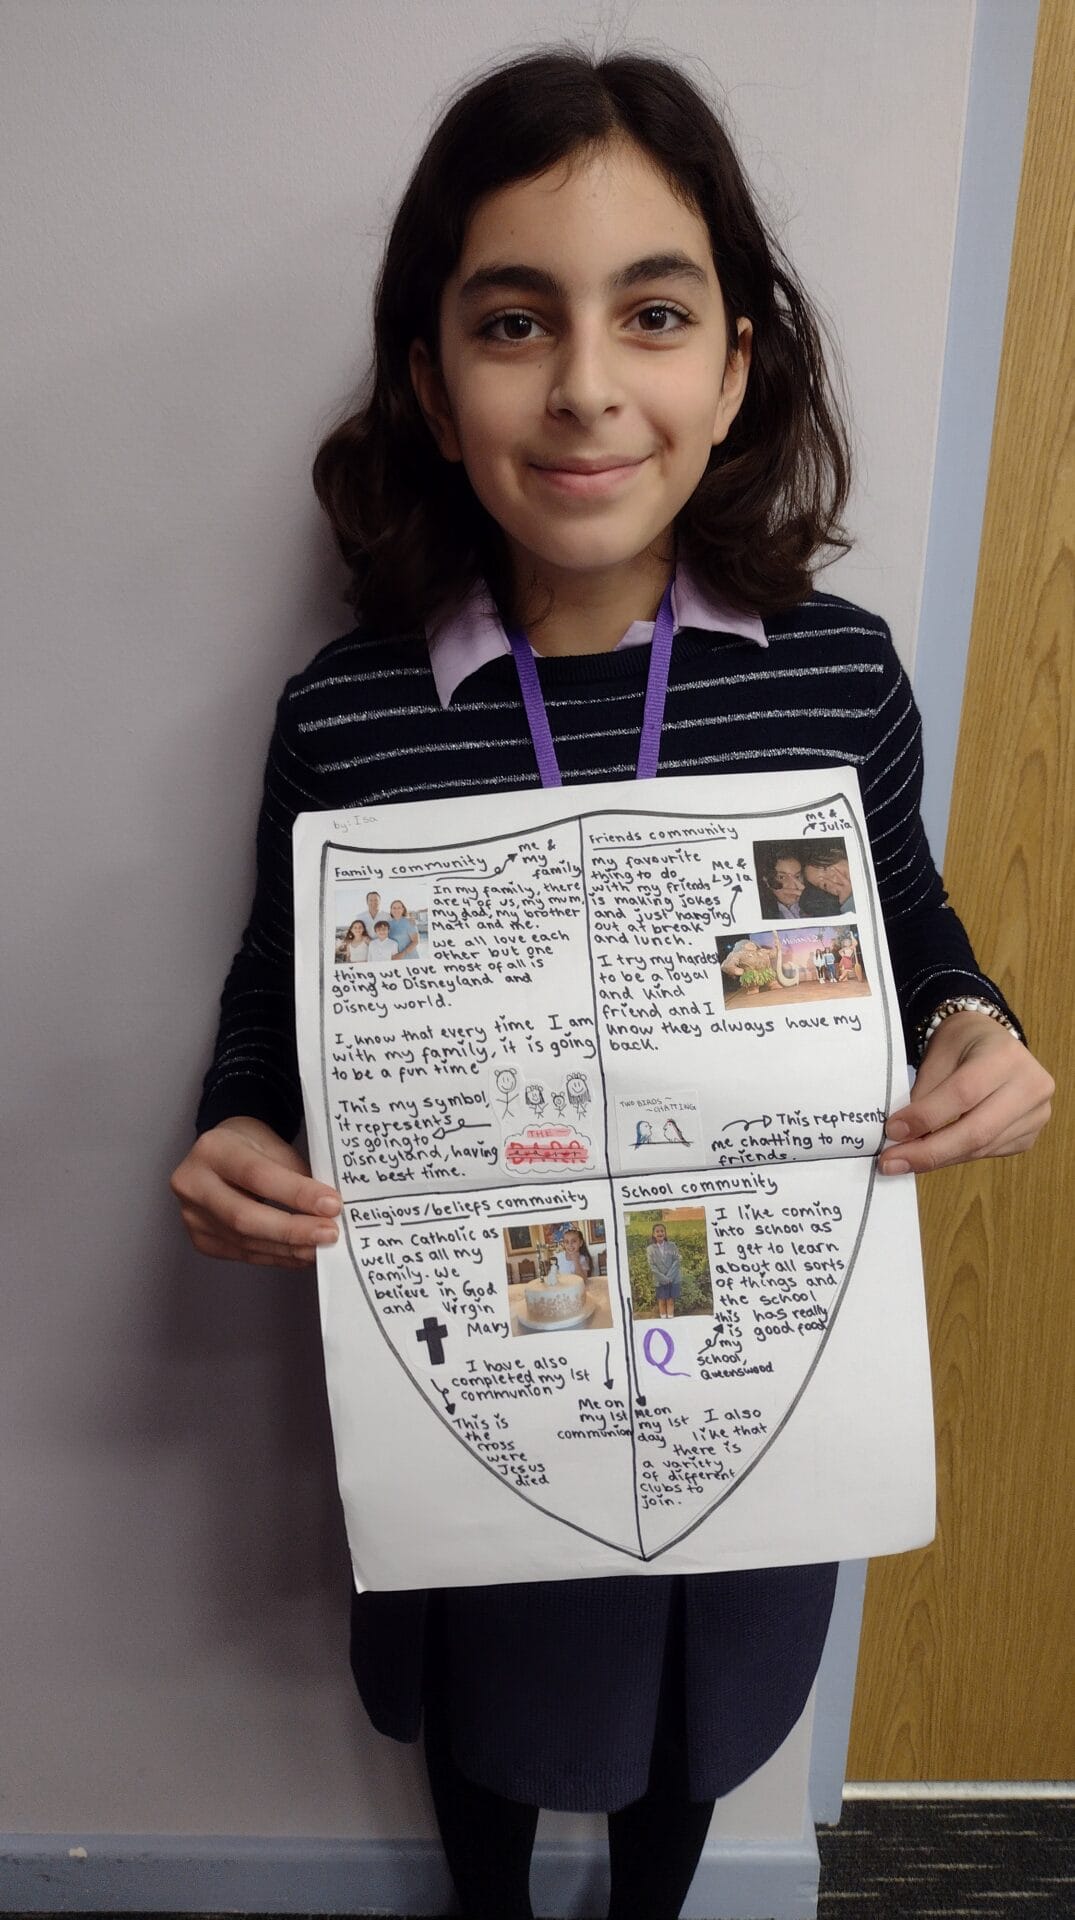 by: Isa
Family community
me &
my
family
In my family, there
are 4 of us, my mum,
my dad, my brother
Mati and me.
we all love each
other but one
thing we love most of all is
going to Disneyland and
Disney world.
I know that every time I am
with my family, it is going
to be a fun time
This my symbol,
it represents
us going to
Disneyland, having
the best time.
THE
Friends community
me &
Julia
my favourite
thing to do
with my friends
is making jokes
and just hanging
out at break
and lunch.
Me &
Lyla
MOANA 2
I try my hardest
to be a loyal
and kind
friend and I
know they always have my
back.
TWO BIRDS
~ CHATTING
This represents
me chatting to my
friends.
Religious/beliefs community
I am Catholic as
well as all my
family. We
believe in God
and Virgin
Mary
I have also
completed my 1st
communion
This is
the
cross
were
Jesus
died
Me on
my 1st
communion
School community
I like coming
into school as
I get to learn
about all sorts
of things and
the school
has really
good food
Q
this
is
my
school,
Queenswood
Me on
my 1st
day
I also
like that
there is
a variety
of different
clubs to
join.